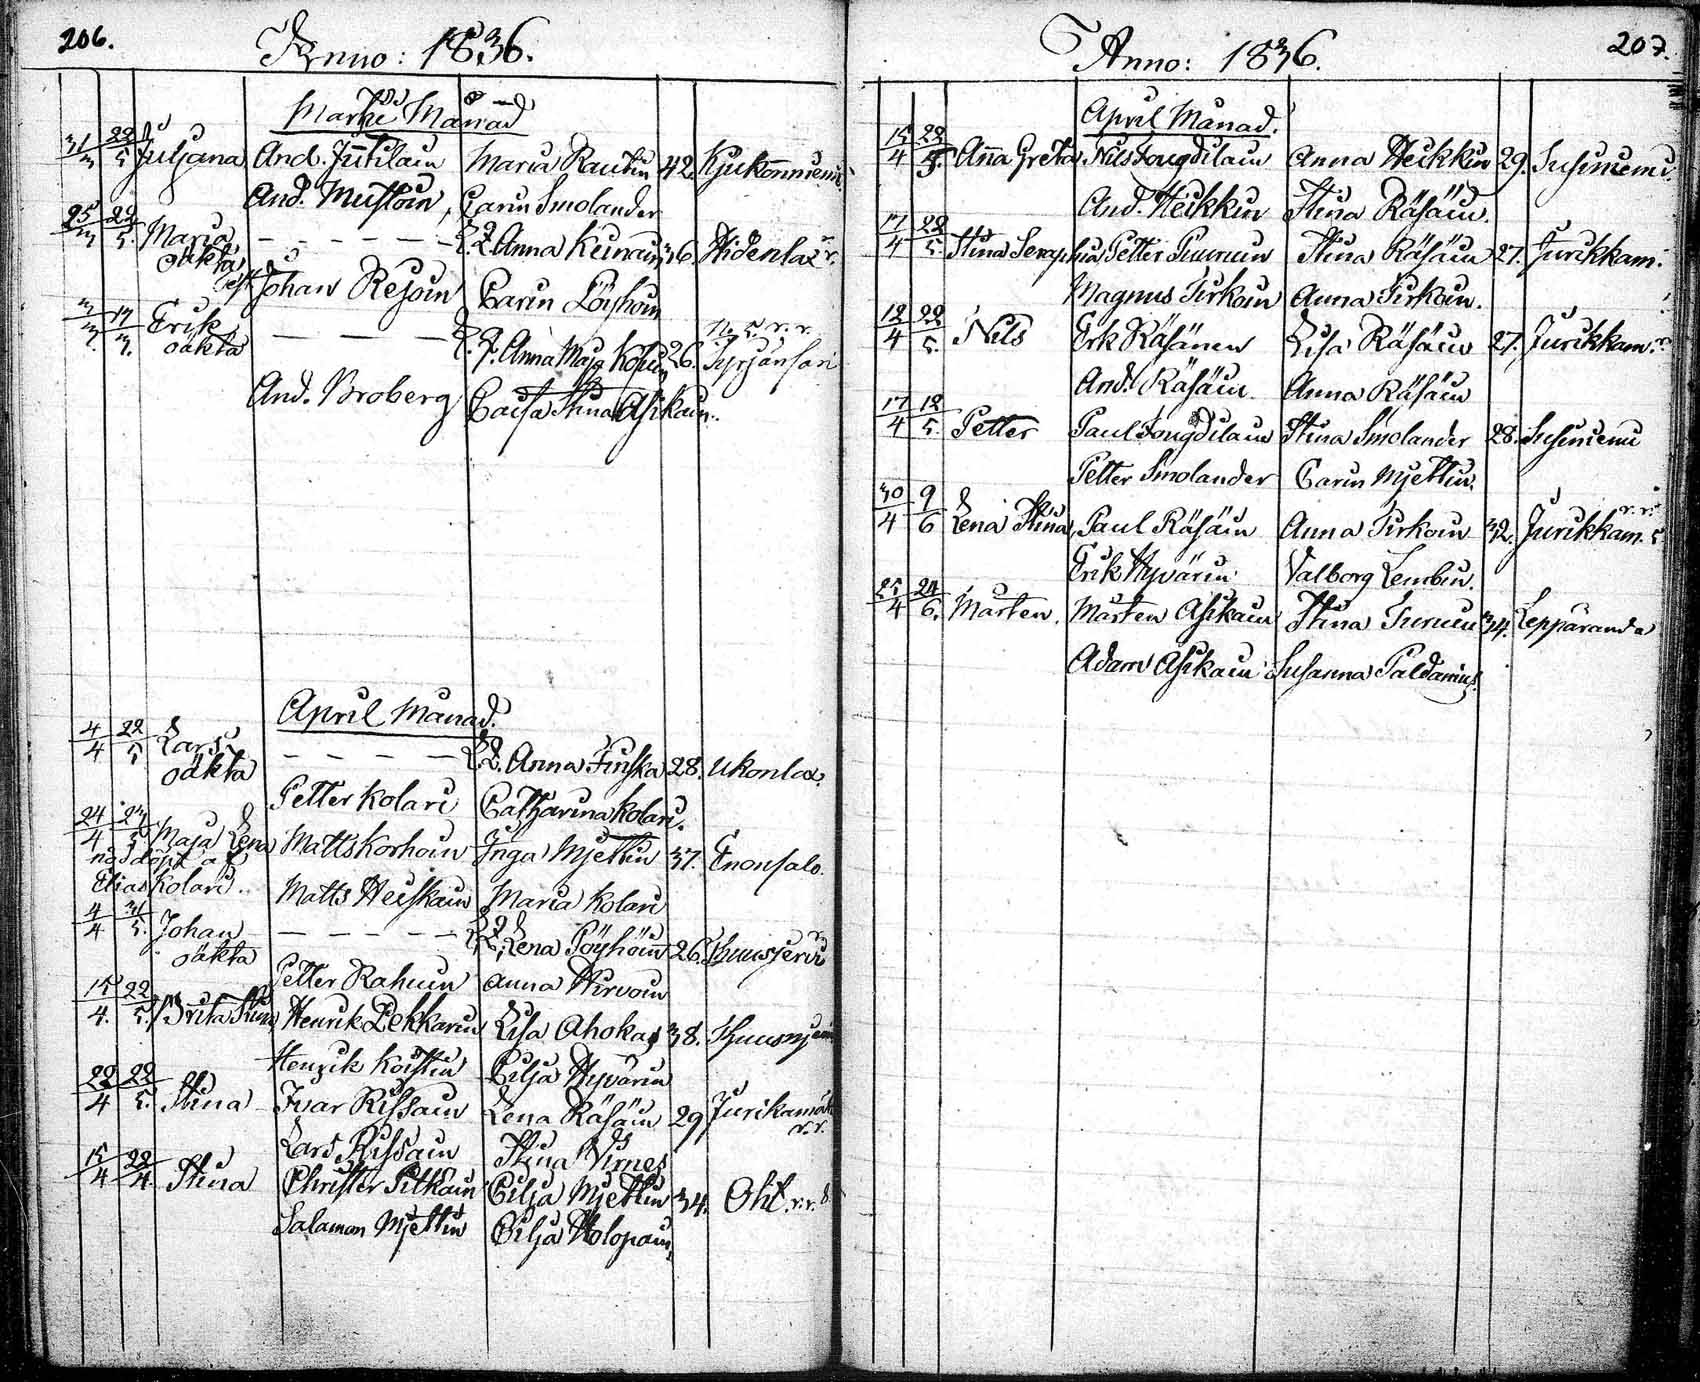 206.
Anno: 1836.
Martii Månad
31/3 22/5 Juljana And. Juntilain Maria Rautin 42.
And. Mustoin, Carin Smolander
25/3 22/5. Maria oäkta — — — — — Anna Keinain 36. Hidenlax
Johan Rejoin Carin Löihöin
3/3 17/3. Erik oäkta — — — Anna Maja 26.
And. Broberg Caisa Stina Asikain.
April Månad.
4/4 22/5 Lars oäkta — — — — Anna Finska 28. Ukonlax.
Petter Kolari Catharina Kolari.
24/4 Maja Lena Matts Korhoin Inga Mjettin 37. Enonsalo.
nöddöpt af
Elias Kolari.
Matts Heiskain Maria Kolari
4/4 31/5. Johan oäkta — — — — — Lena Pöyhöin 26.
Petter Rahuin Anna Hirvoin
15/4. 22/5. Brita Stina Henrik Pekkarin Lisa Ahokas 38.
Henrik Koistin Cilja Hyvärin
22/4 22/5. Stina Ivar Rissain Lena Räsäin 29
Lars Rissain Stina Virnes
15/4 22/4. Stina Christer Pitkäin Cilja Mjettin 34.
Salamon Mjettin Cilja Holopain
207.
Anno: 1836.
April Månad.
15/4 22/5. Anna Greta Nils Fougdilain Anna Heikkin 29. Susiniemi.
And. Heikkin Stina Räsäin.
17/4 22/5. Stina Seraphia Petter Turunen Stina Räsäin 27. Jurikkam.
Magnus Turkoin Anna Turkoin.
18/4 22/5. Nils Erk Räsänen Lisa Räsäin 27. Jurikkam.
And. Räsäin. Anna Räsäin
17/4 12/5. Petter Paul Fougdilain Stina Smolander 28. Susiniemi
Petter Smolander Carin Mjettin.
30/4 9/6 Lena Stina Paul Räsäin Anna Turkoin 32. Jurikkam.
Erik Hyvärin Valborg Lembin.
25/4 24/6. Mårten. Mårten Asikain Stina Turuin 34. Lepparanda
Adam Asikain Susanna Paldanius.